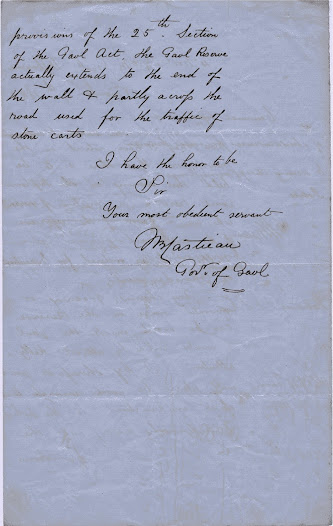 provisions of the 25th. Section
of the Gaol Act. The Gaol Reserve
actually extends to the end of
the wall & partly across the
road used for the traffic of
stone carts
I have the honor to be
Sir
Your most obedient servant
JBCastieau
Govr. of Gaol